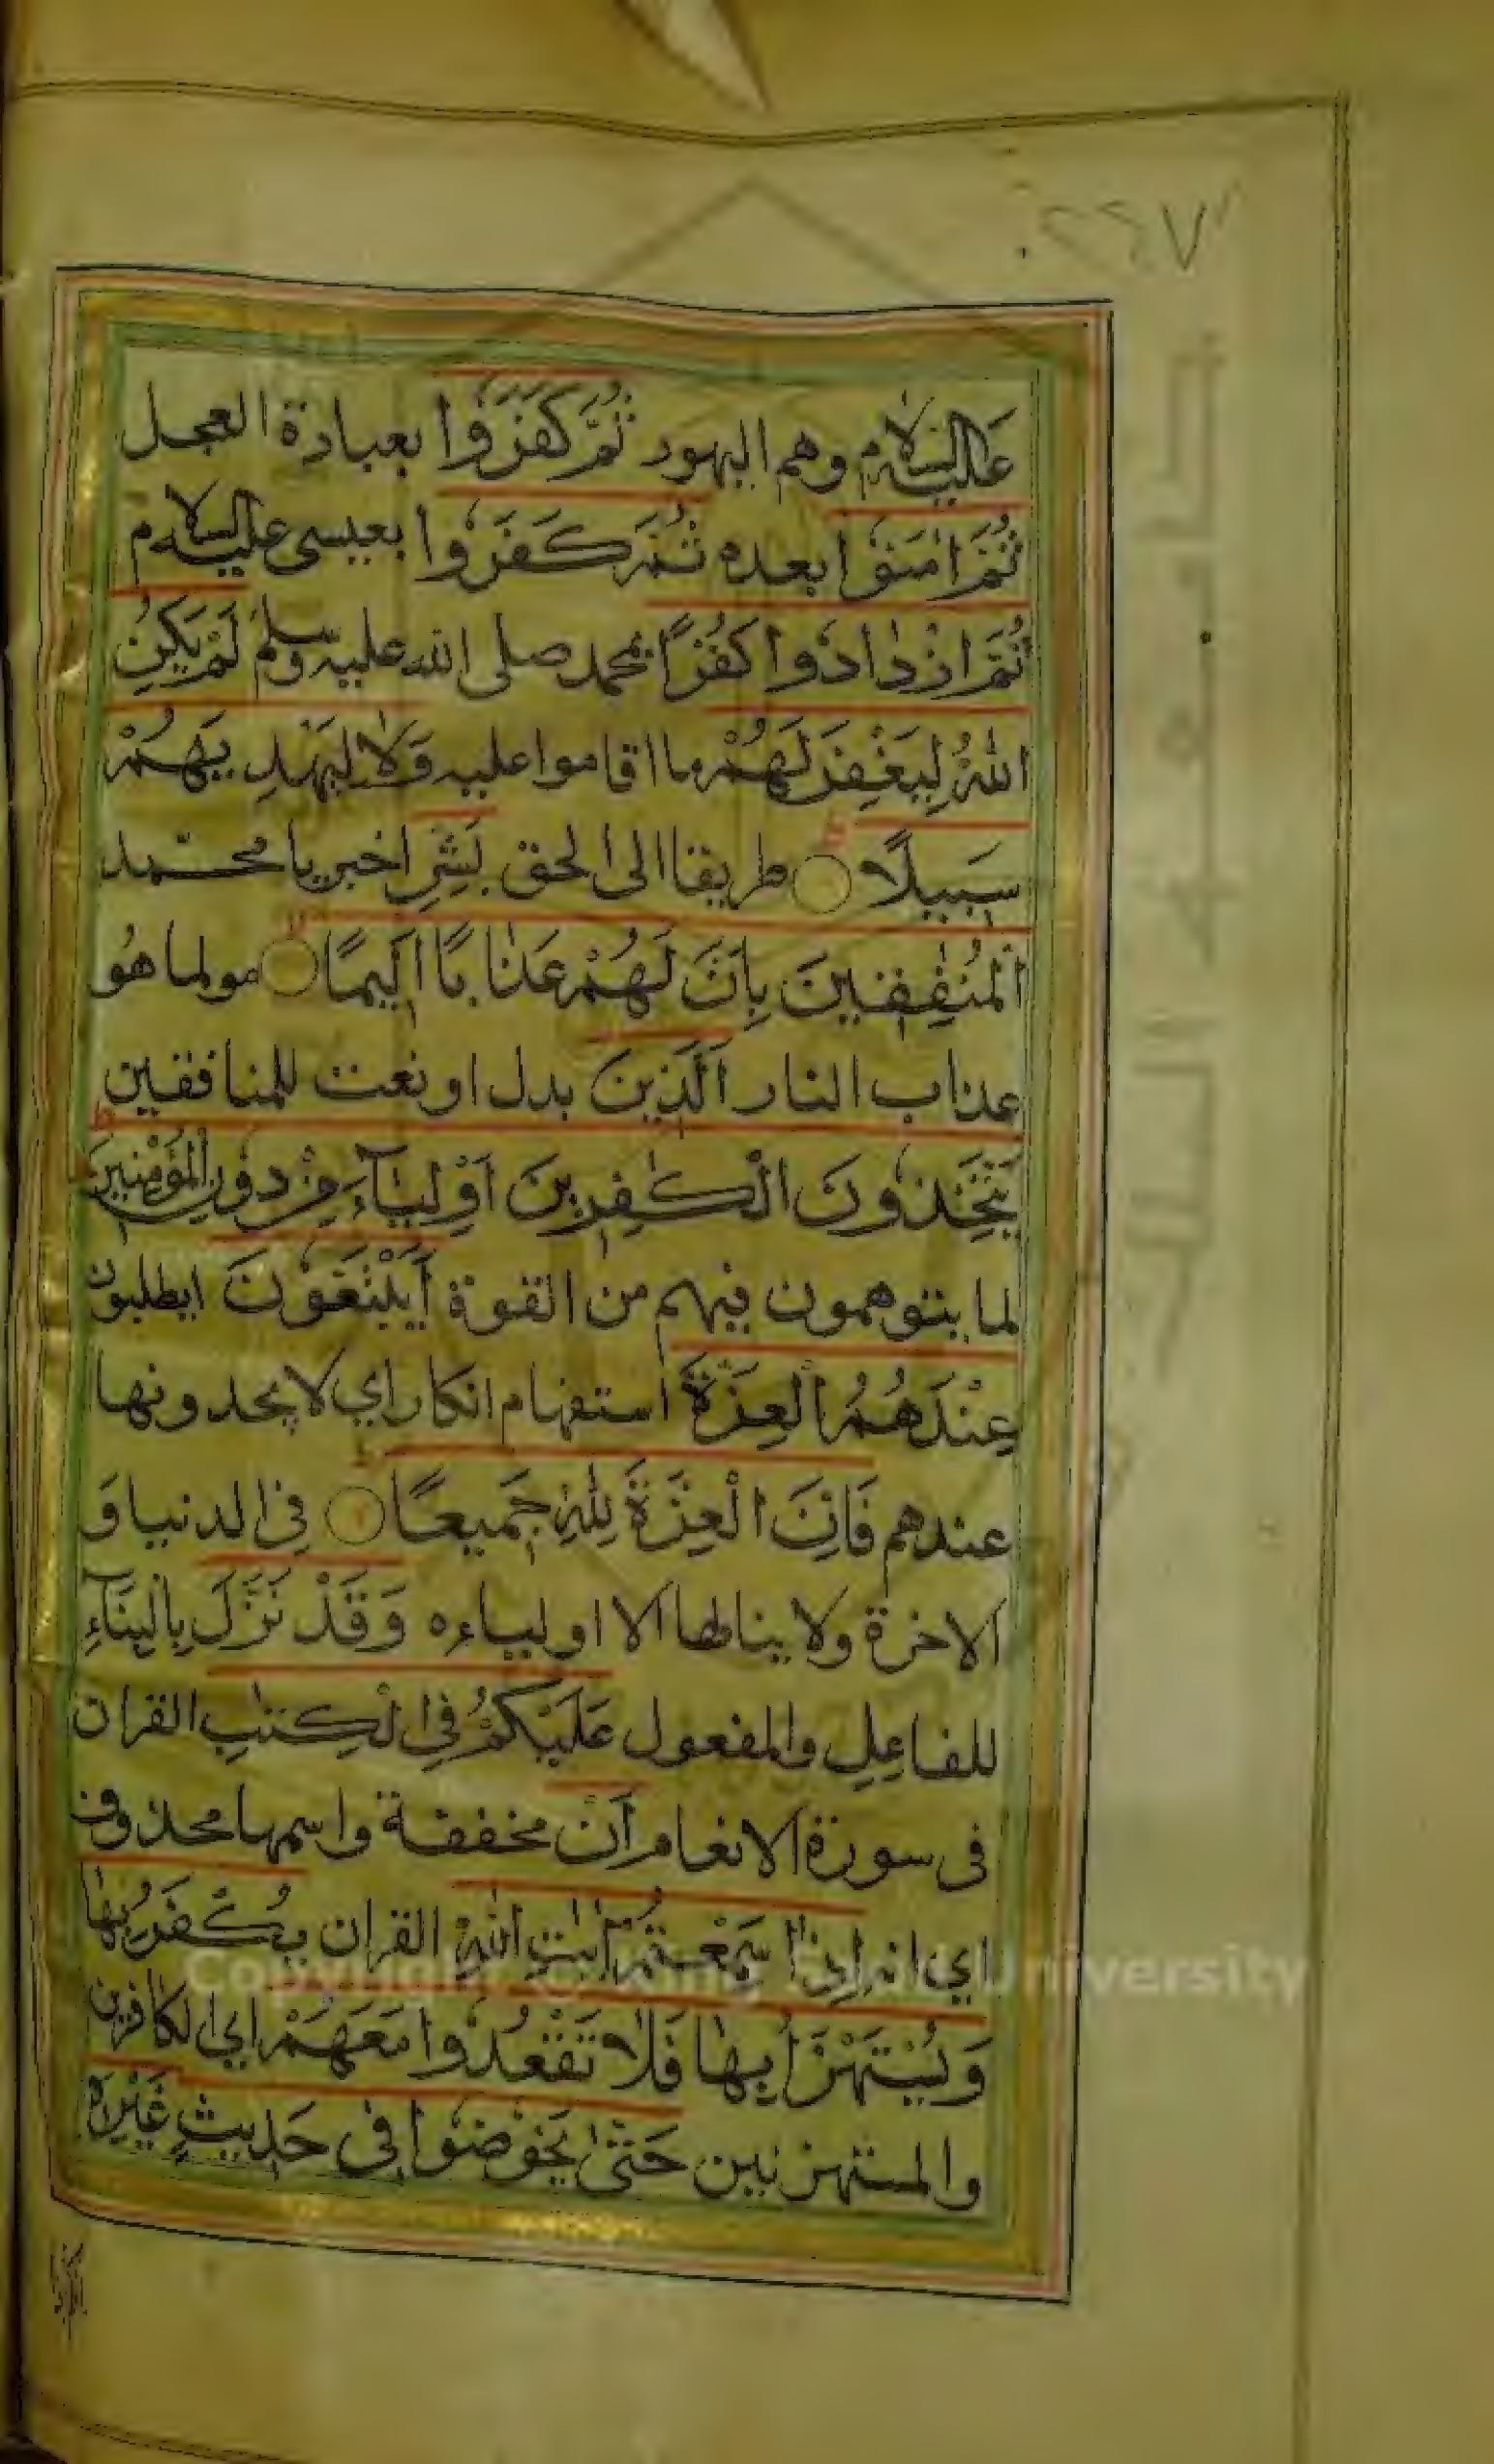 ٢٢٧
عليه السلام وهم اليهود ثُمَّ كَفَرُوا بعبادة العجل
ثُمَّ اٰمَنُوا بعده ثُمَّ كَفَرُوا بعيسى عليه السلام
ثُمَّ ازْدَادُوا كُفْرًا بمحمد صلى الله عليه وسلم لَمْ يَكُنِ
اللّٰهُ لِيَغْفِرَ لَهُمْ ما اقاموا عليه وَلَا لِيَهْدِيَهُمْ
سَبِيلًا طريقا الى الحق بَشِّرِ اخبر يا محمد
الْمُنٰفِقِينَ بِاَنَّ لَهُمْ عَذَابًا اَلِيمًا مولما هو
عذاب النار اَلَّذِينَ بدل او نعت للمنافقين
يَتَّخِذُونَ الْكٰفِرِينَ اَوْلِيَآءَ مِنْ دُونِ الْمُؤْمِنِينَ
لما يتوهمون فيهم من القوة اَيَبْتَغُونَ ايطلبون
عِنْدَهُمُ الْعِزَّةَ استفهام انكار اي لا يجدونها
عندهم فَاِنَّ الْعِزَّةَ لِلّٰهِ جَمِيعًا في الدنيا وَ
الاخرة ولا ينالها الا اولياءه وَقَدْ نَزَّلَ بِالبِنَآءِ
للفاعِلِ والمفعول عَلَيْكُمْ فِي الْكِتٰبِ القران
فى سورة الانعام اَنْ مخففة واسمها محذوف
اي انه اِذَا سَمِعْتُمْ اٰيٰتِ اللّٰهِ القران يُكْفَرُ بِهَا
وَيُسْتَهْزَاُ بِهَا فَلَا تَقْعُدُوا مَعَهُمْ اي الكافرين
والمستهزئين حَتّٰى يَخُوضُوا فِى حَدِيثٍ غَيْرِهِ
Copyright © King Saud University